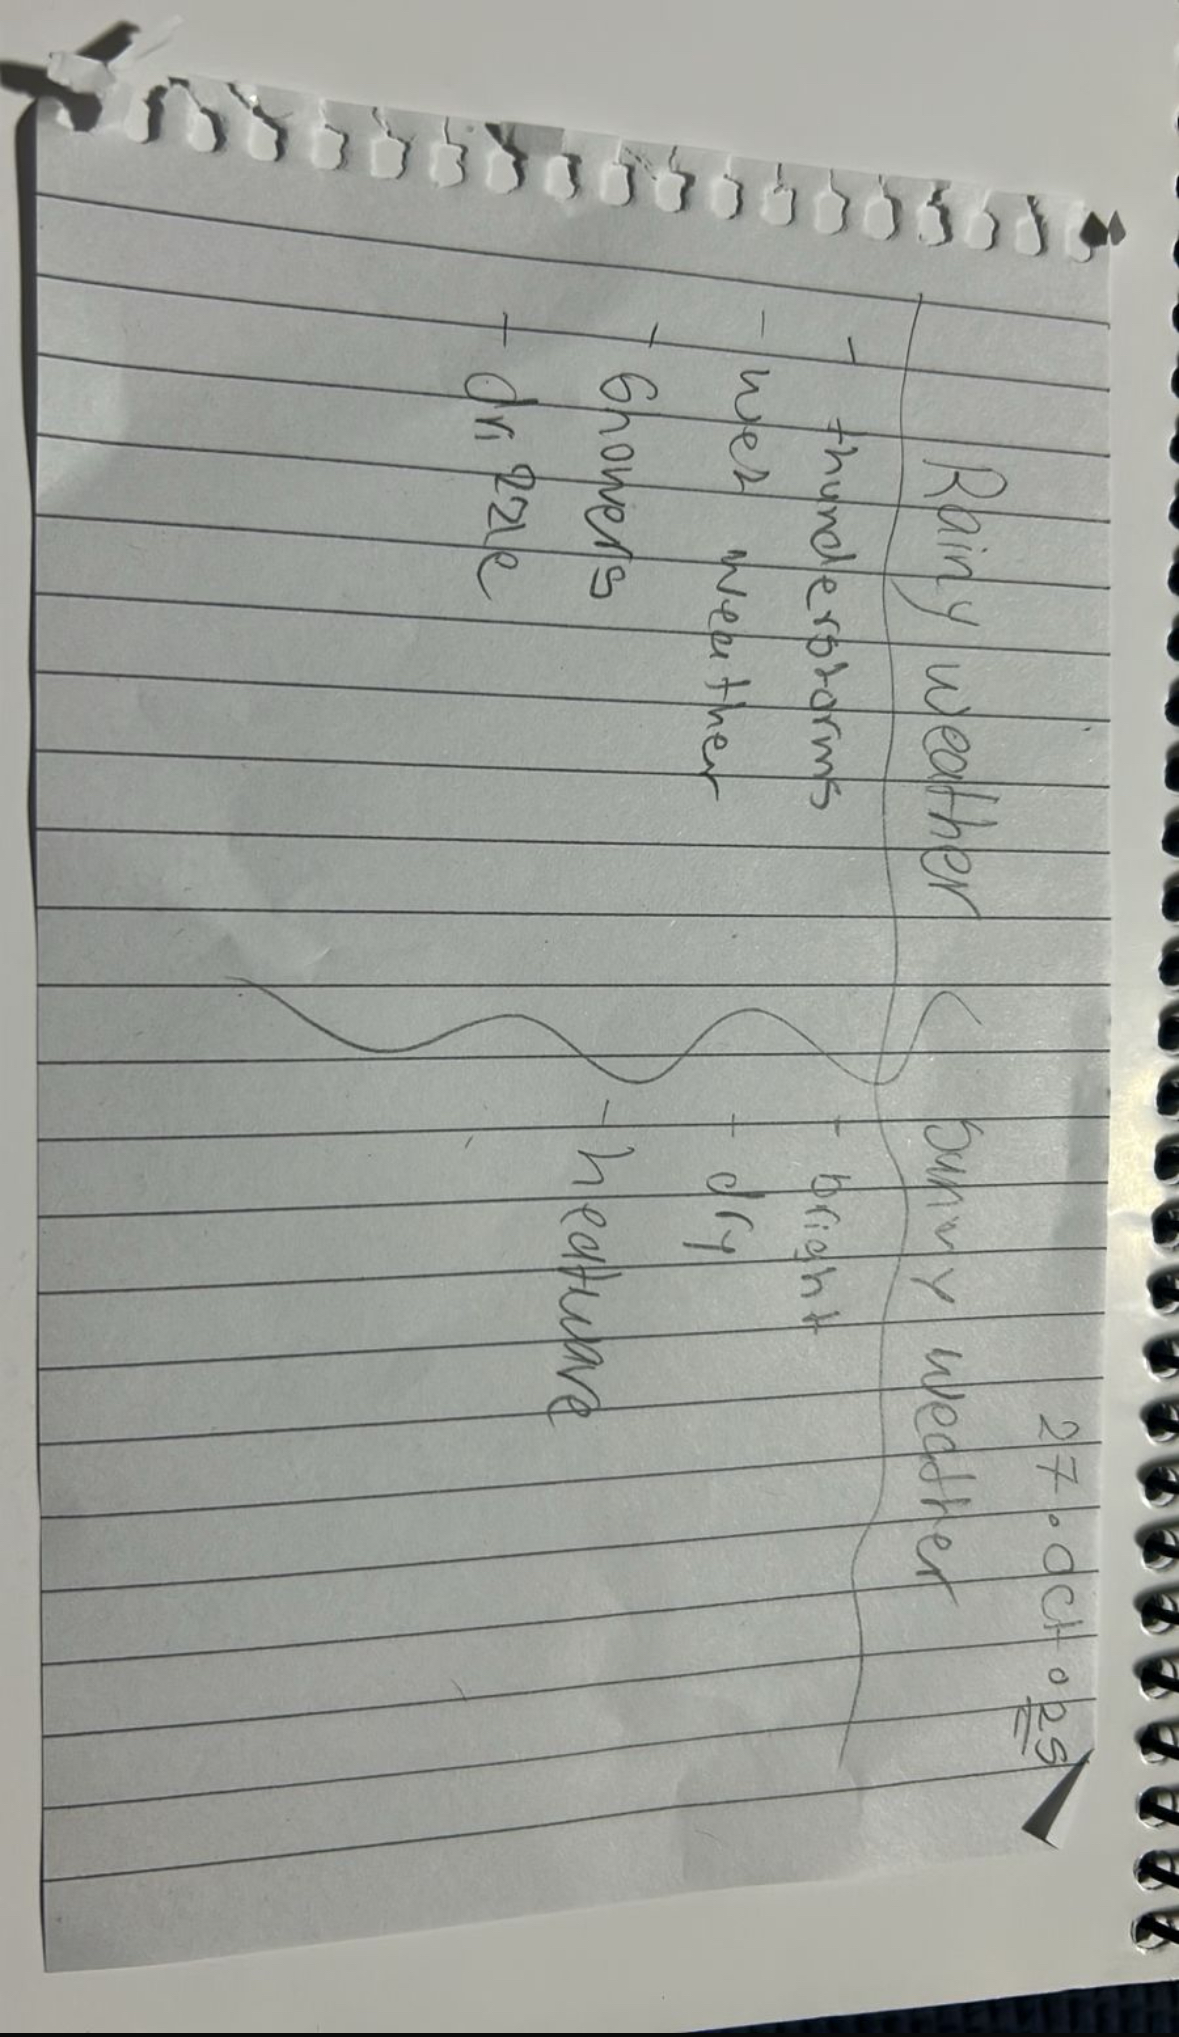 27.oct.25
Rainy weather
- thunderstorms
- wet weather
- showers
- drizzle
Sunny weather
- bright
- dry
- heatwave